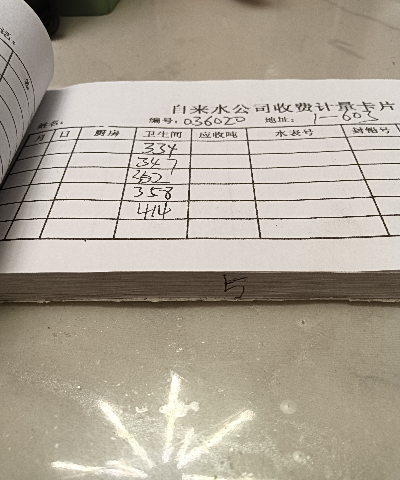 自来水公司收费计量卡片
姓名: 编号: 036020 地址: 1-603
月 日 厨房 卫生间 应收吨 水表号 封铅号
334
347
352
358
414
5